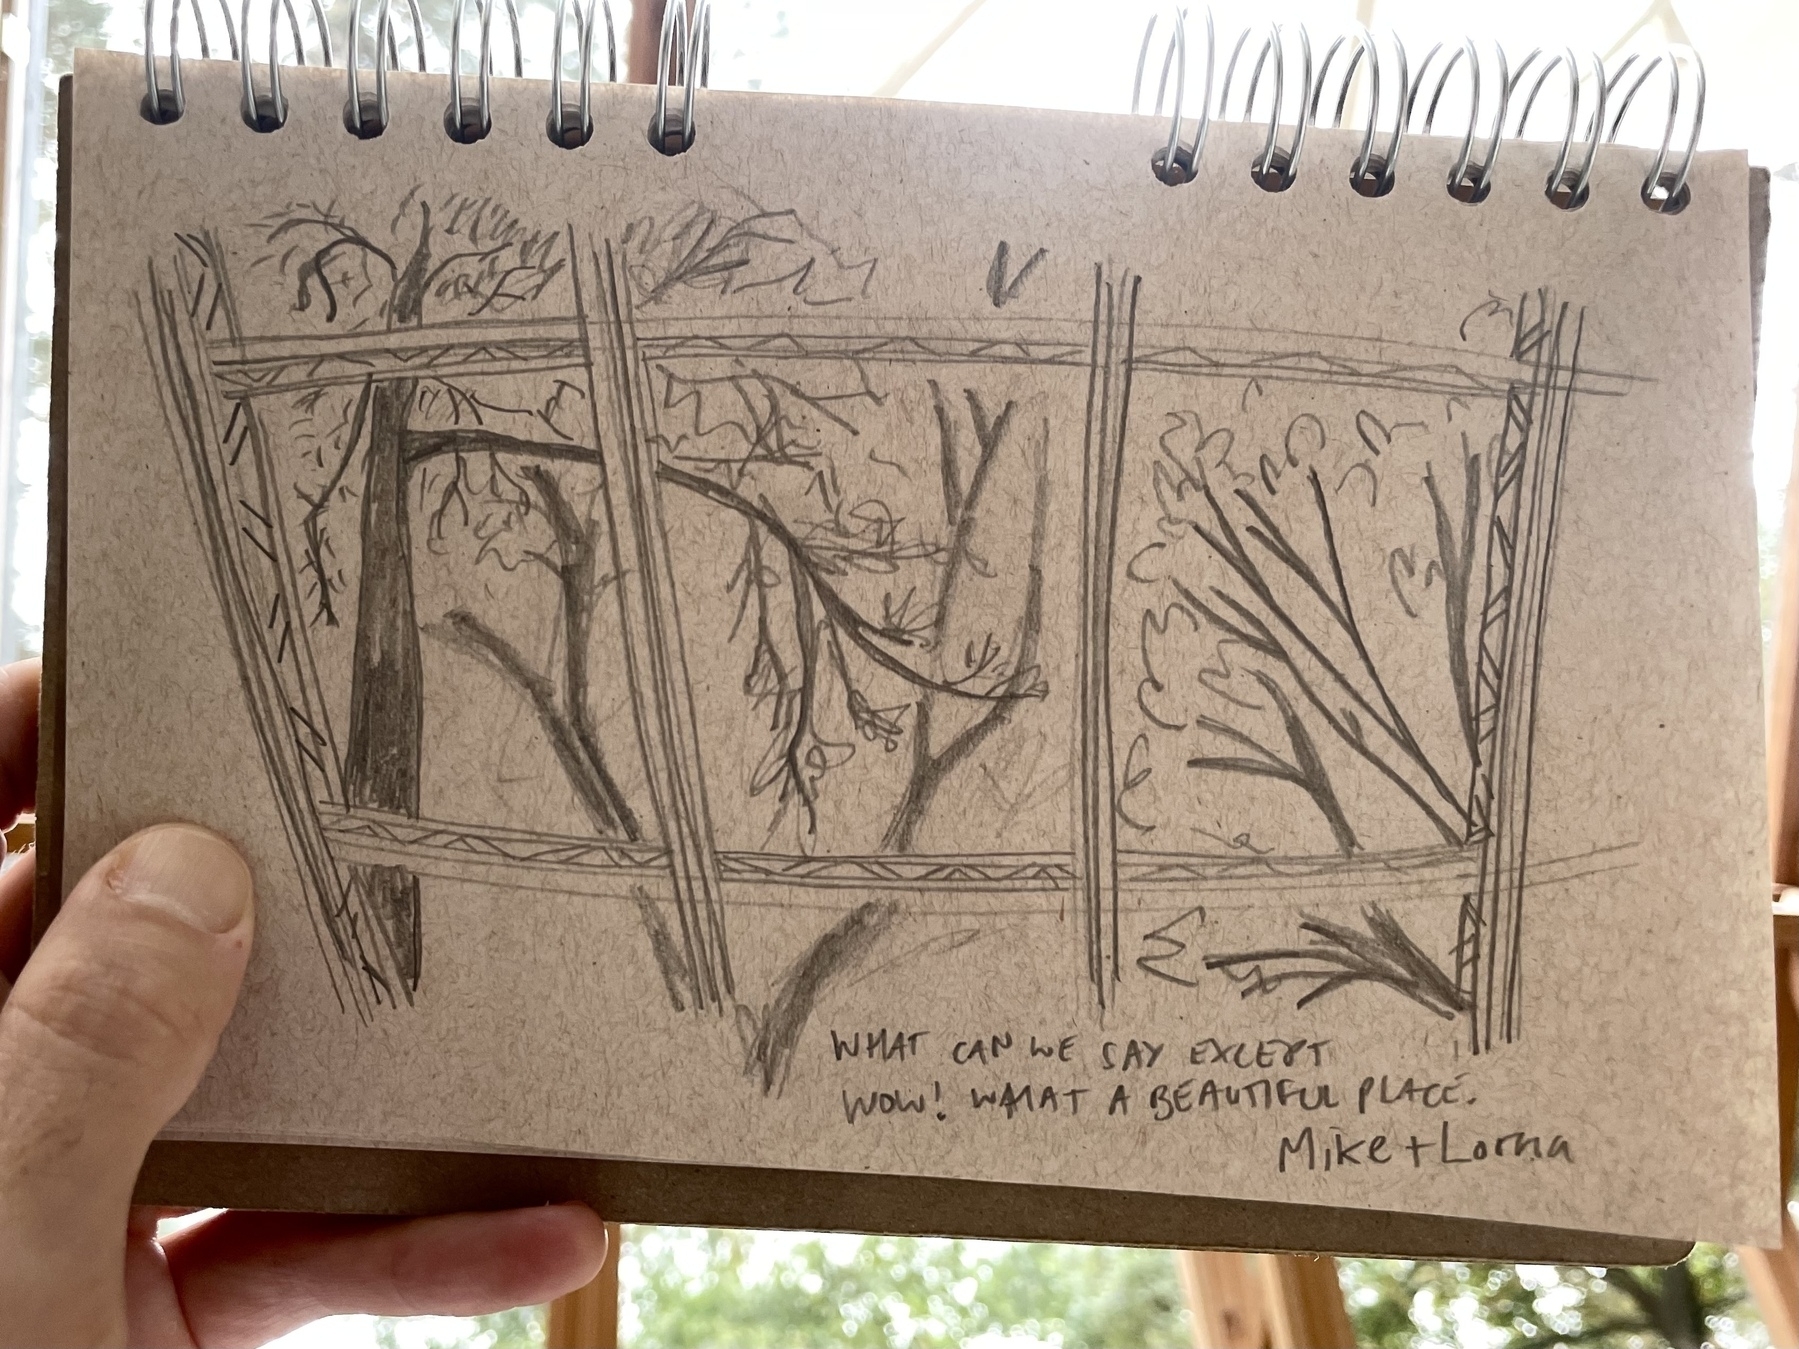 WHAT CAN WE SAY EXCEPT
WOW! WHAT A BEAUTIFUL PLACE.
Mike + Lorna